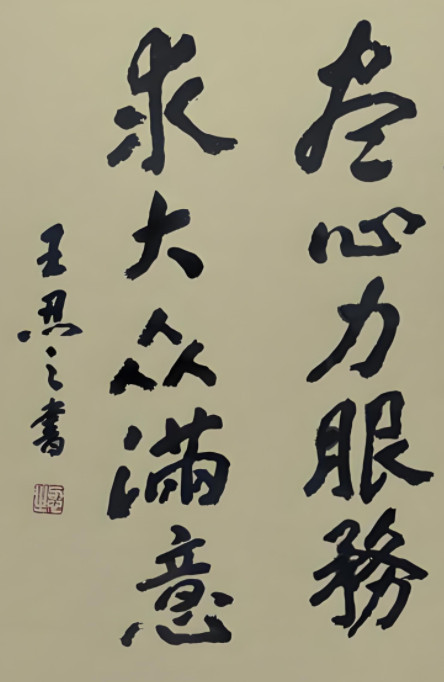 尽心力服務
求大众滿意
王忍之書